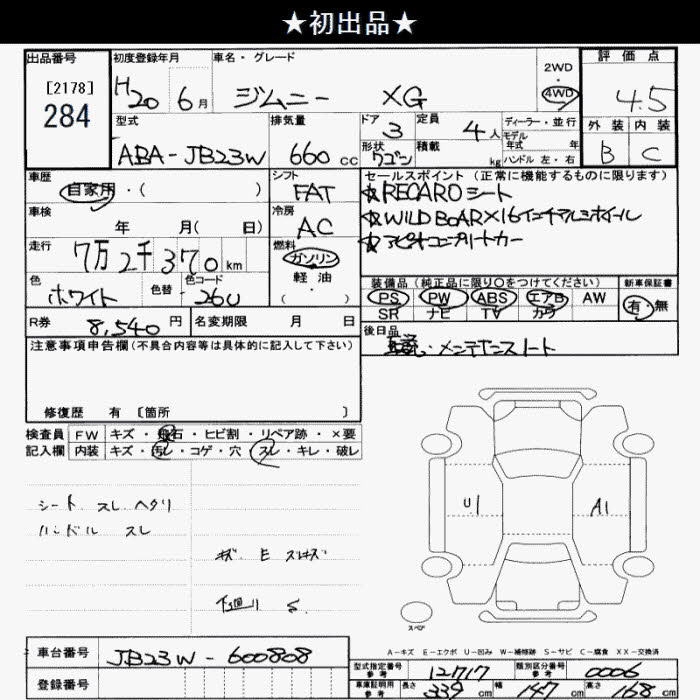 ★初出品★
出品番号
[2178]
284
初度登録年月
H20 6月
車名・グレード
ジムニー XG
2WD
・
4WD
評価点
4.5
外装 内装
B C
型式
ABA-JB23W
排気量
660 cc
ドア 3
形状 ワゴン
定員 4人
積載 kg
ディーラー・並行
モデル
年式 年
ハンドル 左・右
車歴
自家用・( )
車検
年 月( 日)
走行
7万2千370km
色
ホワイト
色替
色コード
26U
シフト
FAT
冷房
AC
燃料
ガソリン
・
軽油
・
( )
セールスポイント(正常に機能するものに限ります)
★RECAROシート
★WILD BOAR×16インチアルミホイール
★アピオコンプリートカー
装備品(純正品に限り○をつけてください)
PS PW ABS エアB AW
SR ナビ TV カワ
新車保証書
有・無
R券 8,540円
名変期限 月 日
後日品
・メンテナンスノート
注意事項申告欄(不具合内容等は具体的に記入して下さい)
修復歴 有 [箇所 ]
検査員
記入欄
FW キズ・飛石・ヒビ割・リペア跡・×要
内装 キズ・汚レ・コゲ・穴・スレ・キレ・破レ
シート スレ ヘタリ
ハンドル スレ
キズ E スリキズ
下廻り S
U1 A1
スペア
A-キズ E-エクボ U-凹み W-補修跡 S-サビ C-腐食 XX-交換済
車台番号 JB23W-600808
登録番号
型式指定番号
参考
12717
類別区分番号
参考
0006
車庫証明用
参考
長さ 339cm 幅 147cm 高さ 168cm